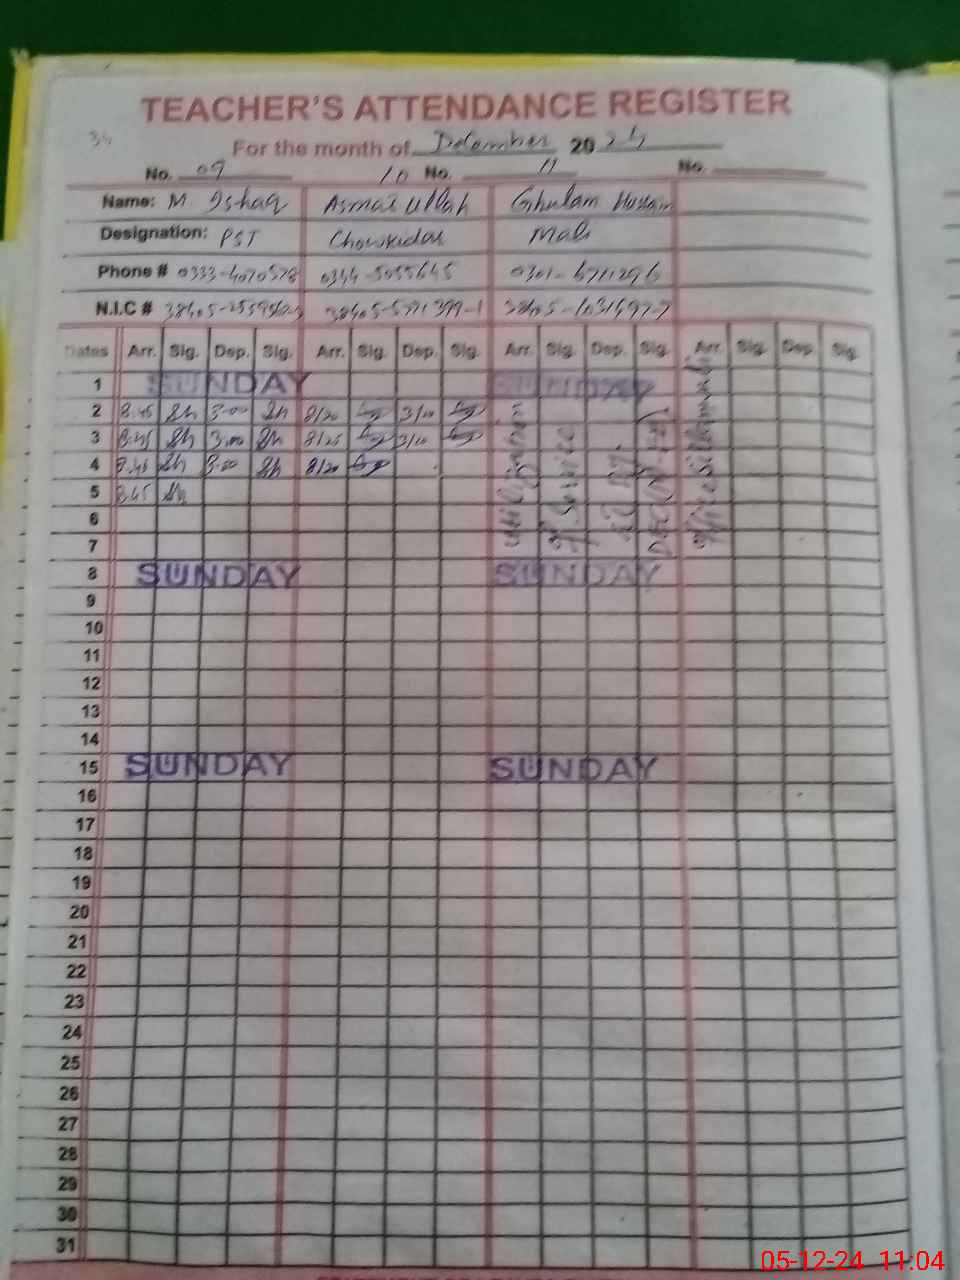 TEACHER'S ATTENDANCE REGISTER
34
For the month of December 2024
No. 09 10 No. 11 No.
Name: M Ishaq Asmat ullah Ghulam Hussain
Designation: PST Chowkidar Mali
Phone # 0333-4070578 0344-5055645 0301-6711296
N.I.C # 38405- 38405- 38405-
Dates Arr. Sig. Dep. Sig. Arr. Sig. Dep. Sig. Arr. Sig. Dep. Sig. Arr. Sig. Dep. Sig.
1 SUNDAY SUNDAY
2 8.45 3.00 8/20 3/10
3 8.45 3.00 8/25 3/10
4 8.45 3.00 8/20
5 8.45
6
7
8 SUNDAY SUNDAY
9
10
11
12
13
14
15 SUNDAY SUNDAY
16
17
18
19
20
21
22
23
24
25
26
27
28
29
30
31
utilizing
services
at
office
05-12-24 11:04